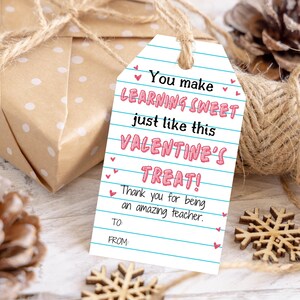 You make
LEARNING SWEET
just like this
VALENTINE'S
TREAT!
Thank you for being
an amazing teacher.
TO:
FROM: